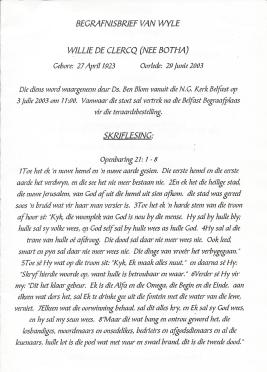 BEGRAFNISBRIEF VAN WYLE
WILLIE DE CLERCQ (NEE BOTHA)
Gebore: 27 April 1923 Oorlede: 29 Junie 2003
Die diens word waargeneem deur Ds. Ben Blom vanuit die N.G. Kerk Belfast op
3 Julie 2003 om 11:00. Vanwaar die stoet sal vertrek na die Belfast Begraafplaas
vir die teraardebestelling.
SKRIFLESING:
Openbaring 21: 1 - 8
1Toe het ek 'n nuwe hemel en 'n nuwe aarde gesien. Die eerste hemel en die eerste
aarde het verdwyn, en die see het nie meer bestaan nie. 2En ek het die heilige stad,
die nuwe Jerusalem, van God af uit die hemel uit sien afkom. die stad was gereed
soos 'n bruid wat vir haar man versier is. 3Toe het ek 'n harde stem van die troon
af hoor sê: "Kyk, die woonplek van God is nou by die mense. Hy sal by hulle bly;
hulle sal sy volke wees, en God self sal by hulle wees as hulle God. 4Hy sal al die
trane van hulle oë afdroog. Die dood sal daar nie meer wees nie. Ook leed,
smart en pyn sal daar nie meer wees nie. Die dinge van vroeër het verbygegaan."
5Toe sê Hy wat op die troon sit: "Kyk, Ek maak alles nuut." en daarna sê Hy:
"Skryf hierdie woorde op, want hulle is betroubaar en waar." 6Verder sê Hy vir
my: "Dit het klaar gebeur. Ek is die Alfa en die Omega, die Begin en die Einde. aan
elkeen wat dors het, sal Ek te drinke gee uit die fontein met die water van die lewe,
verniet. 7Elkeen wat die oorwinning behaal, sal dit alles kry, en Ek sal sy God wees,
en hy sal my seun wees. 8"Maar dit wat bang en ontrou geword het, die
losbandiges, moordenaars en onsedelikes, bedriërs en afgodsdienaars en al die
leuenaars, hulle lot is die poel wat met vuur en swael brand, dit is die tweede dood."